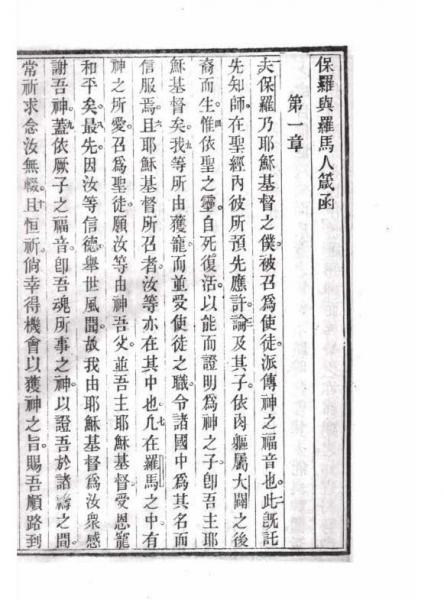 保羅與羅馬人箴函
第一章
夫保羅乃耶穌基督之僕。被召為使徒。派傳神之福音也。二此旣託
先知師。在聖經內彼所預先應許。三論及其子。依肉軀屬大闢之後
裔而生。四惟依聖之靈。自死復活。以能而證明為神之子。卽吾主耶
穌基督矣。五我等所由獲寵而並受使徒之職。令諸國中為其名而
信服焉。六且耶穌基督所召者。汝等亦在其中也。七凢在羅馬之中有
神之所愛。召為聖徒。願汝等由神吾父。並吾主耶穌基督受恩寵
和平矣。八最先因汝等信德。舉世風聞。故我由耶穌基督為汝衆感
謝吾神。九蓋依厥子之福音。卽吾魂所事之神。以證吾於諸禱之間。
常祈求念汝無輟。十且恒祈。倘幸得機會以獲神之旨。賜吾順路到